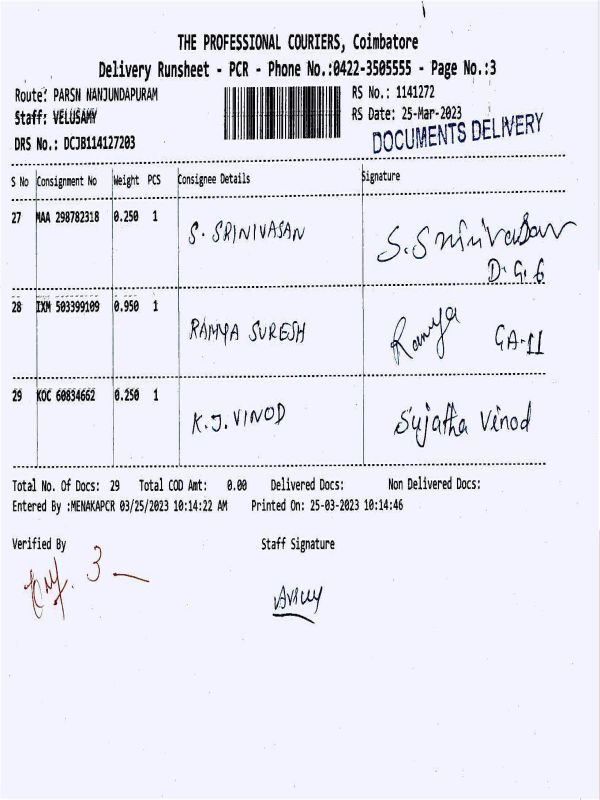 THE PROFESSIONAL COURIERS, Coimbatore
Delivery Runsheet - PCR - Phone No.:0422-3505555 - Page No.:3
Route: PARSN NANJUNDAPURAM RS No.: 1141272
Staff: VELUSAMY RS Date: 25-Mar-2023
DOCUMENTS DELIVERY
DRS No.: DCJB114127203
S No Consignment No Weight PCS Consignee Details Signature
27 MAA 298782318 0.250 1 S. SRINIVASAN S. Srinivasan
D.G.6
28 IXM 503399109 0.950 1 RAMYA SURESH Ramya GA-11
29 KOC 60834662 0.250 1 K.J. VINOD Sujatha Vinod
Total No. Of Docs: 29 Total COD Amt: 0.00 Delivered Docs: Non Delivered Docs:
Entered By :MENAKAPCR 03/25/2023 10:14:22 AM Printed On: 25-03-2023 10:14:46
Verified By Staff Signature
3